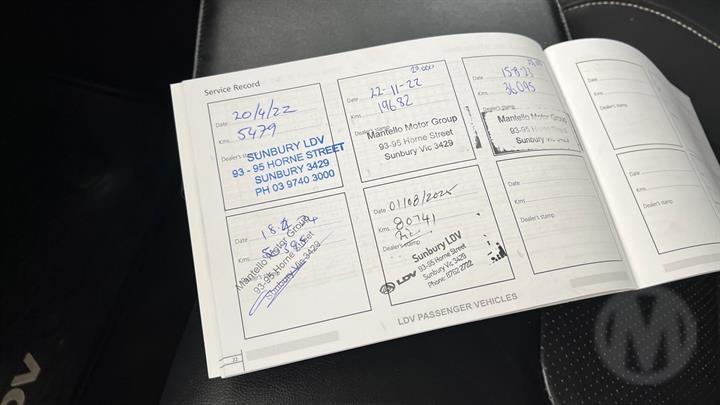 Service Record
Date 20/4/22
Kms 5479
Dealer's stamp
SUNBURY LDV
93 - 95 HORNE STREET
SUNBURY 3429
PH 03 9740 3000
Date 22-11-22
Kms 19682
Dealer's stamp
Mantello Motor Group
93-95 Horne Street
Sunbury Vic 3429
Date 15-8-23
Kms 36095
Dealer's stamp
Mantello Motor Group
93-95 Horne Street
Sunbury Vic 3429
Date
Kms
Dealer's stamp
Date
Kms
Dealer's stamp
Mantello Motor Group
93-95 Horne Street
Sunbury Vic 3429
Date 01/08/2025
Kms 80741
Dealer's stamp
Sunbury LDV
93-95 Horne Street
Sunbury Vic 3429
LDV
Date
Kms
Dealer's stamp
Date
Kms
Dealer's stamp
LDV PASSENGER VEHICLES
22
M